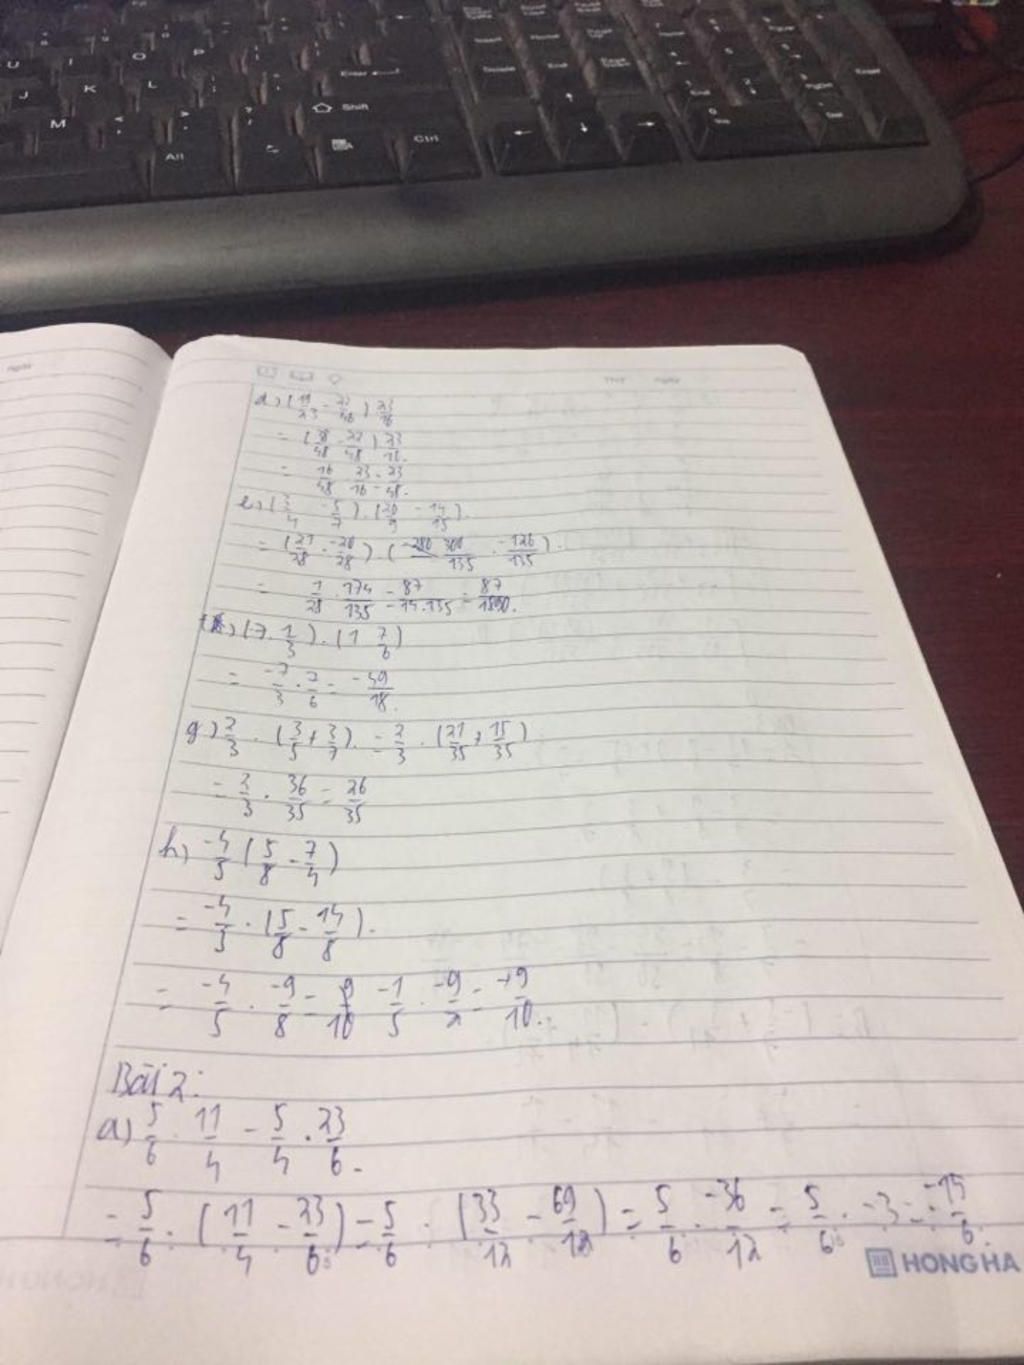 U I O P
J K L Enter
M Shift
Alt Ctrl
d) (19/23 - 22/48) 23/16
= (38/48 - 22/48) 23/16.
= 16/48 23/16 = 23/48.
e) (3/4 - 5/7) . (20/9 - 14/15).
= (21/28 . -20/28) (300/135 . -126/135).
= 1/28 . 174/135 = 87/14.135 = 87/1890.
(-7 1/3) . (1 7/6)
= -7/3 . 7/6 = -49/18.
g) 2/3 . (3/5 + 3/7). = 2/3 . (21/35 + 15/35)
= 2/3 . 36/35 = 26/35
h) -4/5 (5/8 - 7/4)
= -4/5 . (5/8 - 14/8).
= -4/5 . -9/8 = 9/10 -1/5 . -9/2 = +9/10.
Bài 2:
a) 5/6 . 11/4 - 5/4 . 23/6.
= 5/6 . (11/4 - 23/6) = 5/6 . (33/12 - 69/12) = 5/6 . -36/12 = 5/6 . -3 = -15/6.
HONG HA